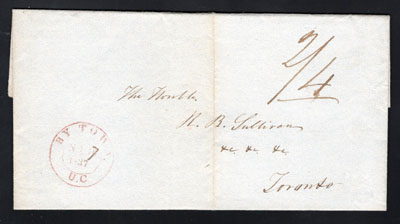 2/4
The Honble
R. B. Sullivan
&c &c &c
Toronto
BY TO
U.C